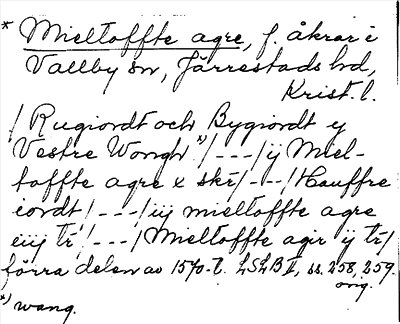 * Mieltoffte agre, f. åkrar i
Vallby sn, Järrestads hd,
Krist. l.
/ Rugiordt och Bygiordt ij
Vestre Wongh *) / - - - / ij Miel-
toffte agre x skr / - - - / Hauffre
iordt / - - - / iij mieltoffte agre
eiij tr / - - - / Mieltoffte agir ij tr /
förra delen av 1570-t. LSLB II, ss. 258, 259
orig.
*) wang.